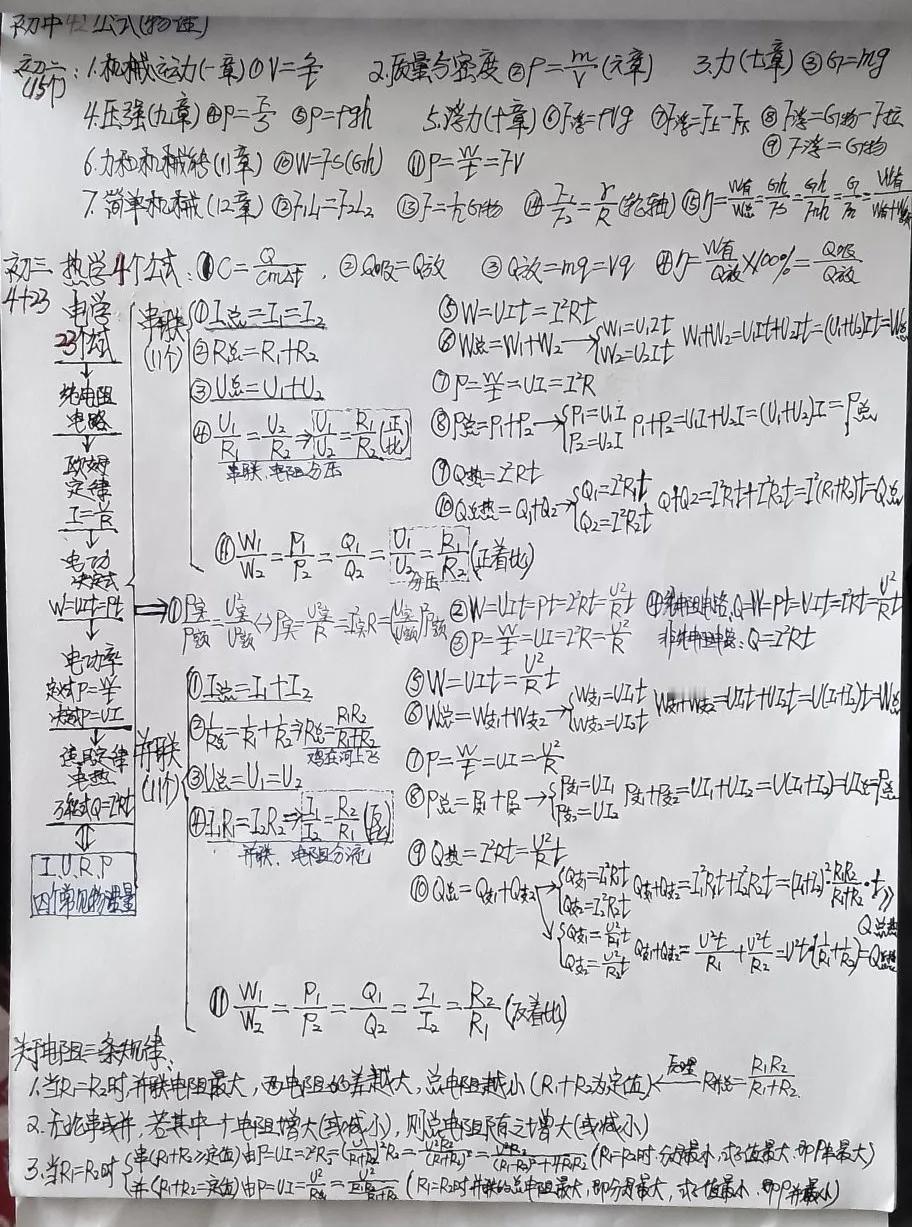 初中42公式(物理)
初二：1.机械运动(一章)①V=S/t 2.质量与密度②ρ=m/V(六章) 3.力(七章)③G=mg
(15个)
4.压强(九章)④P=F/S ⑤P=ρgh 5.浮力(十章)⑥F浮=ρVg ⑦F浮=F上-F下 ⑧F浮=G物-F拉
⑨F浮=G物
6.功和机械能(11章)⑩W=FS(Gh) ⑪P=W/t=FV
7.简单机械(12章)⑫F₁L₁=F₂L₂ ⑬F=1/n G物 ⑭F₁/F₂=r/R(轮轴) ⑮η=W有/W总=Gh/FS=Gh/Fnh=G/Fn=W有/W有+W额
初三 热学4个公式：①C=Q/CmΔt，②Q吸=Q放 ③Q放=mq=Vq ④η=W有/Q放×100%=Q吸/Q放
4+23
电学
23个公式
↓
纯电阻
电路
↓
欧姆
定律
I=U/R
↓
电功
决定式
W=UIt=Pt
↓
电功率
定义式P=W/t
决定式P=UI
↓
焦耳定律
电热
万能式Q=I²Rt
⇕
I.U.R.P
四个常见物理量
串联
(11个)
①I总=I₁=I₂
②R总=R₁+R₂
③U总=U₁+U₂
④U₁/R₁=U₂/R₂⇒U₁/U₂=R₁/R₂(正比)
串联、电阻分压
⑤W=UIt=I²Rt
⑥W总=W₁+W₂→{W₁=U₁It W₂=U₂It W₁+W₂=U₁It+U₂It=(U₁+U₂)It=W总
⑦P=W/t=UI=I²R
⑧P总=P₁+P₂→{P₁=U₁I P₂=U₂I P₁+P₂=U₁I+U₂I=(U₁+U₂)I=P总
⑨Q热=I²Rt
⑩Q总热=Q₁+Q₂→{Q₁=I²R₁t Q₂=I²R₂t Q₁+Q₂=I²R₁t+I²R₂t=I²(R₁+R₂)t=Q总
⑪W₁/W₂=P₁/P₂=Q₁/Q₂=U₁/U₂=R₁/R₂(正着比)
分压
⇒①P实/P额=U²实/U²额⇔P实=U²实/R=I²实R=(U实/U额)²P额 ②W=UIt=Pt=I²Rt=U²/R t ④纯电阻电路、Q=W=Pt=UIt=I²Rt=U²/R t
③P=W/t=UI=I²R=U²/R 非纯电阻电路、Q=I²Rt
并联
(11个)
①I总=I₁+I₂
②1/R总=1/R₁+1/R₂⇒R总=R₁R₂/R₁+R₂
鸡在河上飞
③U总=U₁=U₂
④I₁R₁=I₂R₂⇒I₁/I₂=R₂/R₁(反比)
并联、电阻分流
⑤W=UIt=U²/R t
⑥W总=W支₁+W支₂→{W支₁=UI₁t W支₂=UI₂t W支₁+W支₂=UI₁t+UI₂t=U(I₁+I₂)t=W总
⑦P=W/t=UI=U²/R
⑧P总=P支₁+P支₂→{P支₁=UI₁ P支₂=UI₂ P支₁+P支₂=UI₁+UI₂=U(I₁+I₂)=UI总=P总
⑨Q热=I²Rt=U²/R t
⑩Q总=Q支₁+Q支₂→{Q支₁=I₁²R₁t Q支₂=I₂²R₂t Q支₁+Q支₂=I₁²R₁t+I₂²R₂t=(I₁+I₂)²·R₁R₂/R₁+R₂·t
Q总热
↘{Q支₁=U²/R₁t Q支₂=U²/R₂t Q支₁+Q支₂=U²t/R₁+U²t/R₂=U²t(1/R₁+1/R₂)=Q总热
⑪W₁/W₂=P₁/P₂=Q₁/Q₂=I₁/I₂=R₂/R₁(反着比)
关于电阻三条规律、
1.当R₁=R₂时,并联电阻最大，两电阻的差越大，总电阻越小(R₁+R₂为定值)←原理 R并总=R₁R₂/R₁+R₂
2.无论串或并，若其中一个电阻增大(或减小)，则总电阻随之增大(或减小)
3.当R₁=R₂时{串(R₁+R₂为定值)由P=UI=I²R₂=(U/R₁+R₂)²R₂=U²R₂/(R₁+R₂)²=U²R₂/(R₁-R₂)²+4R₁R₂(R₁=R₂时分母最小,式子值最大,即P串最大)
并(R₁+R₂=定值)由P=UI=U²/R总=U²/R₁R₂/R₁+R₂(R₁=R₂时并联的总电阻最大,即分母最大，式子值最小,即P并最小)